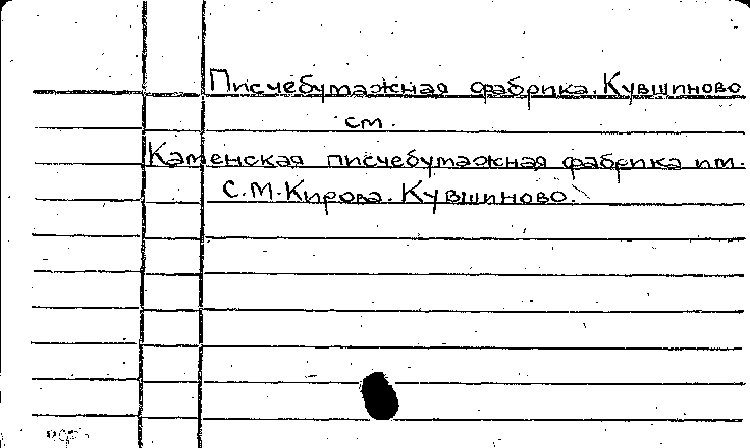 Писчебумажная фабрика. Кувшиново
см.
Каменская писчебумажная фабрика им.
С.М. Кирова. Кувшиново.